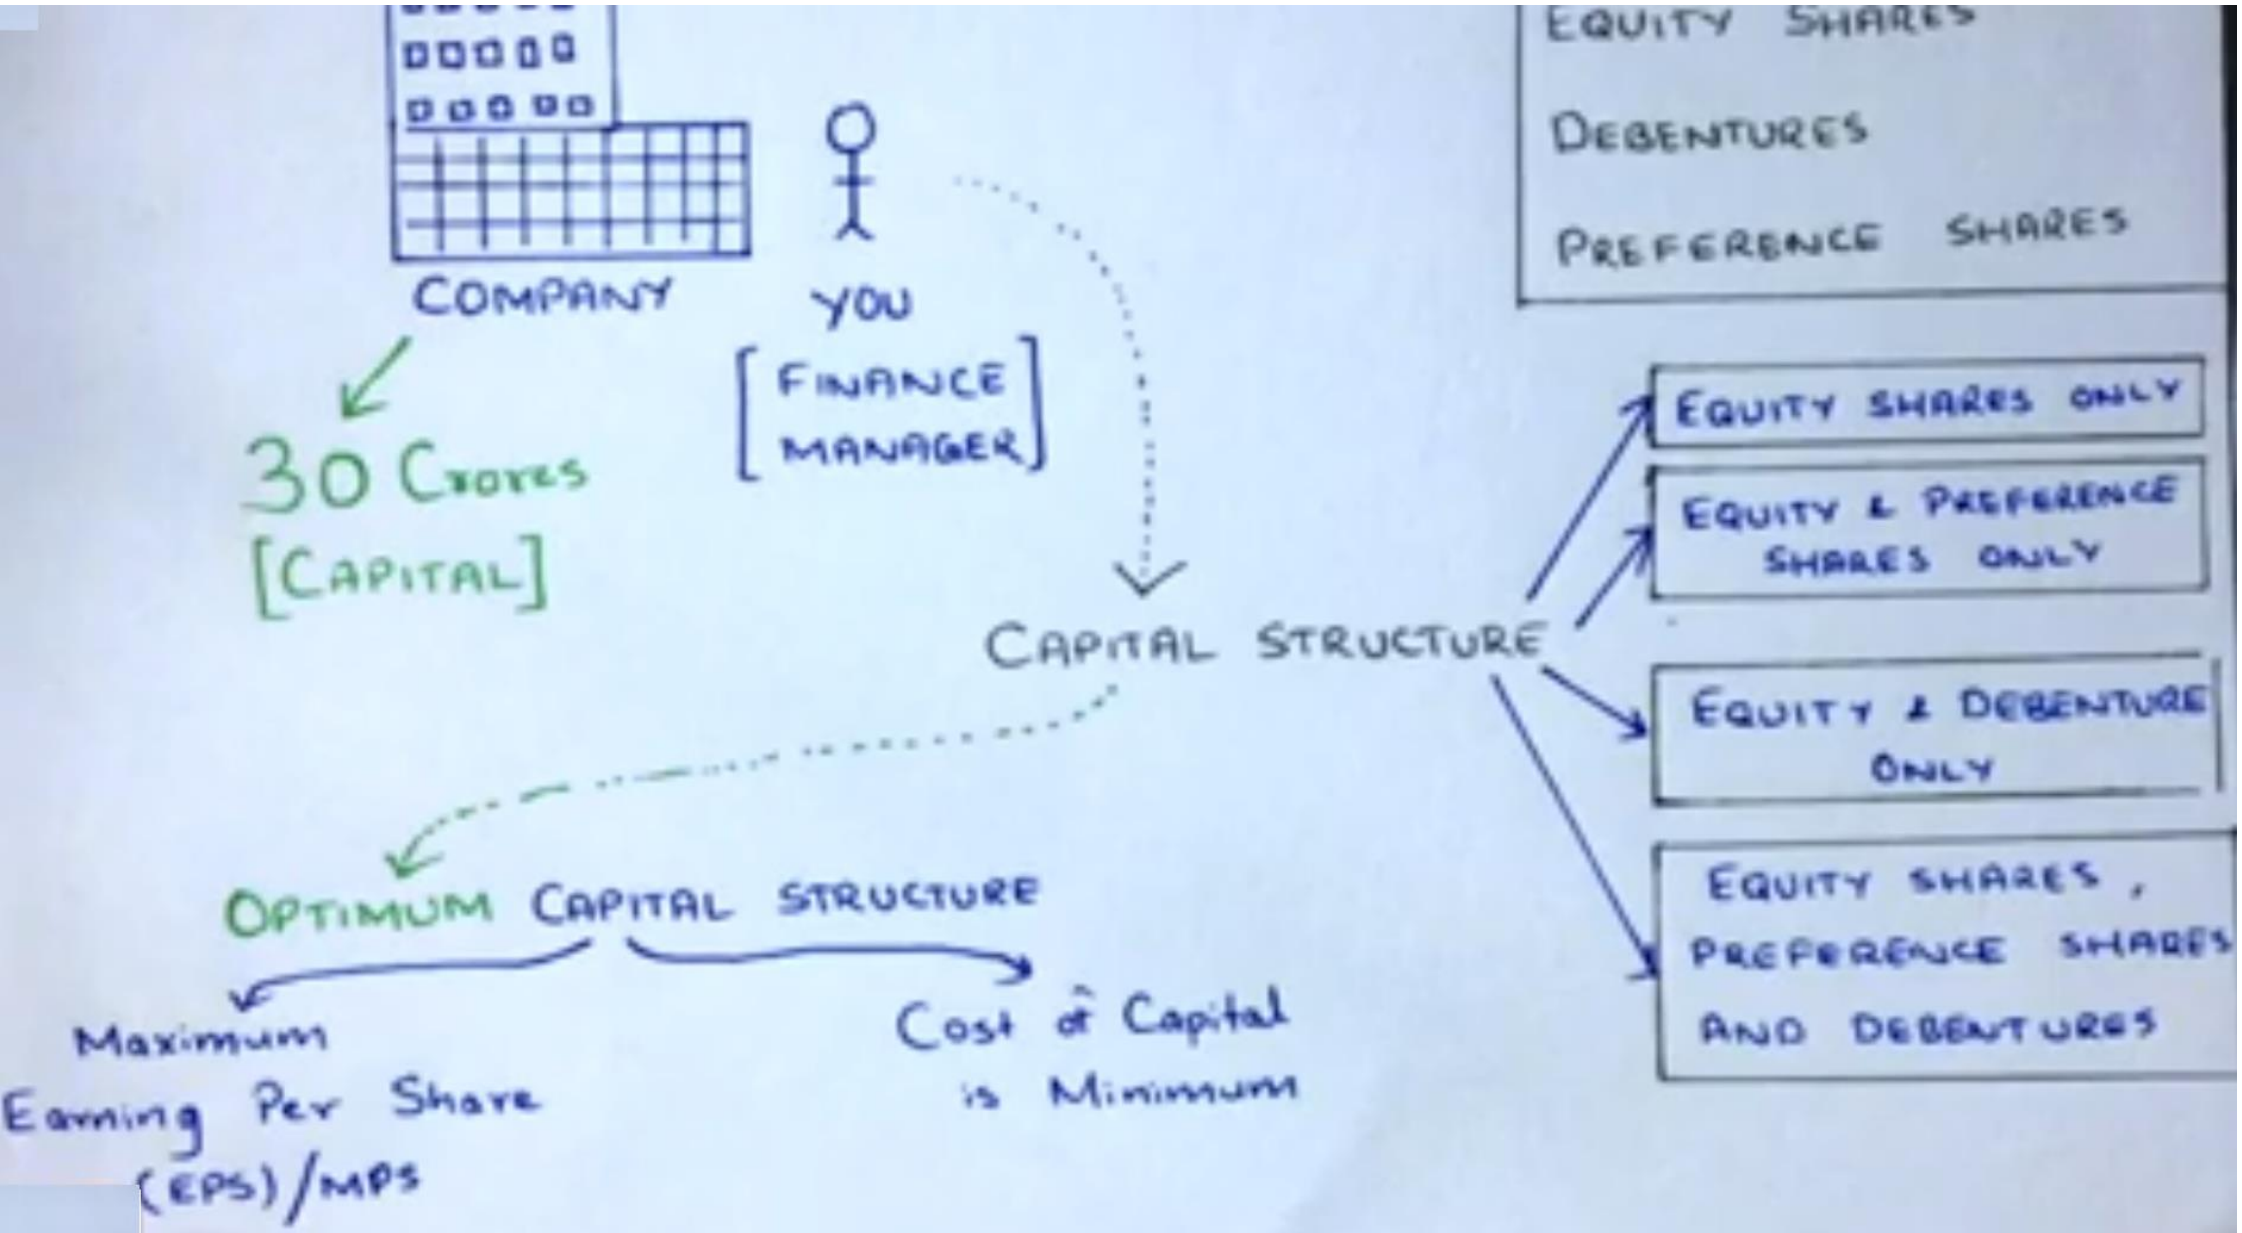 EQUITY SHARES
DEBENTURES
PREFERENCE SHARES
COMPANY
YOU
[FINANCE
MANAGER]
30 Crores
[CAPITAL]
CAPITAL STRUCTURE
EQUITY SHARES ONLY
EQUITY & PREFERENCE
SHARES ONLY
EQUITY & DEBENTURE
ONLY
EQUITY SHARES,
PREFERENCE SHARES
AND DEBENTURES
OPTIMUM CAPITAL STRUCTURE
Maximum
Earning Per Share
(EPS)/MPS
Cost of Capital
is Minimum